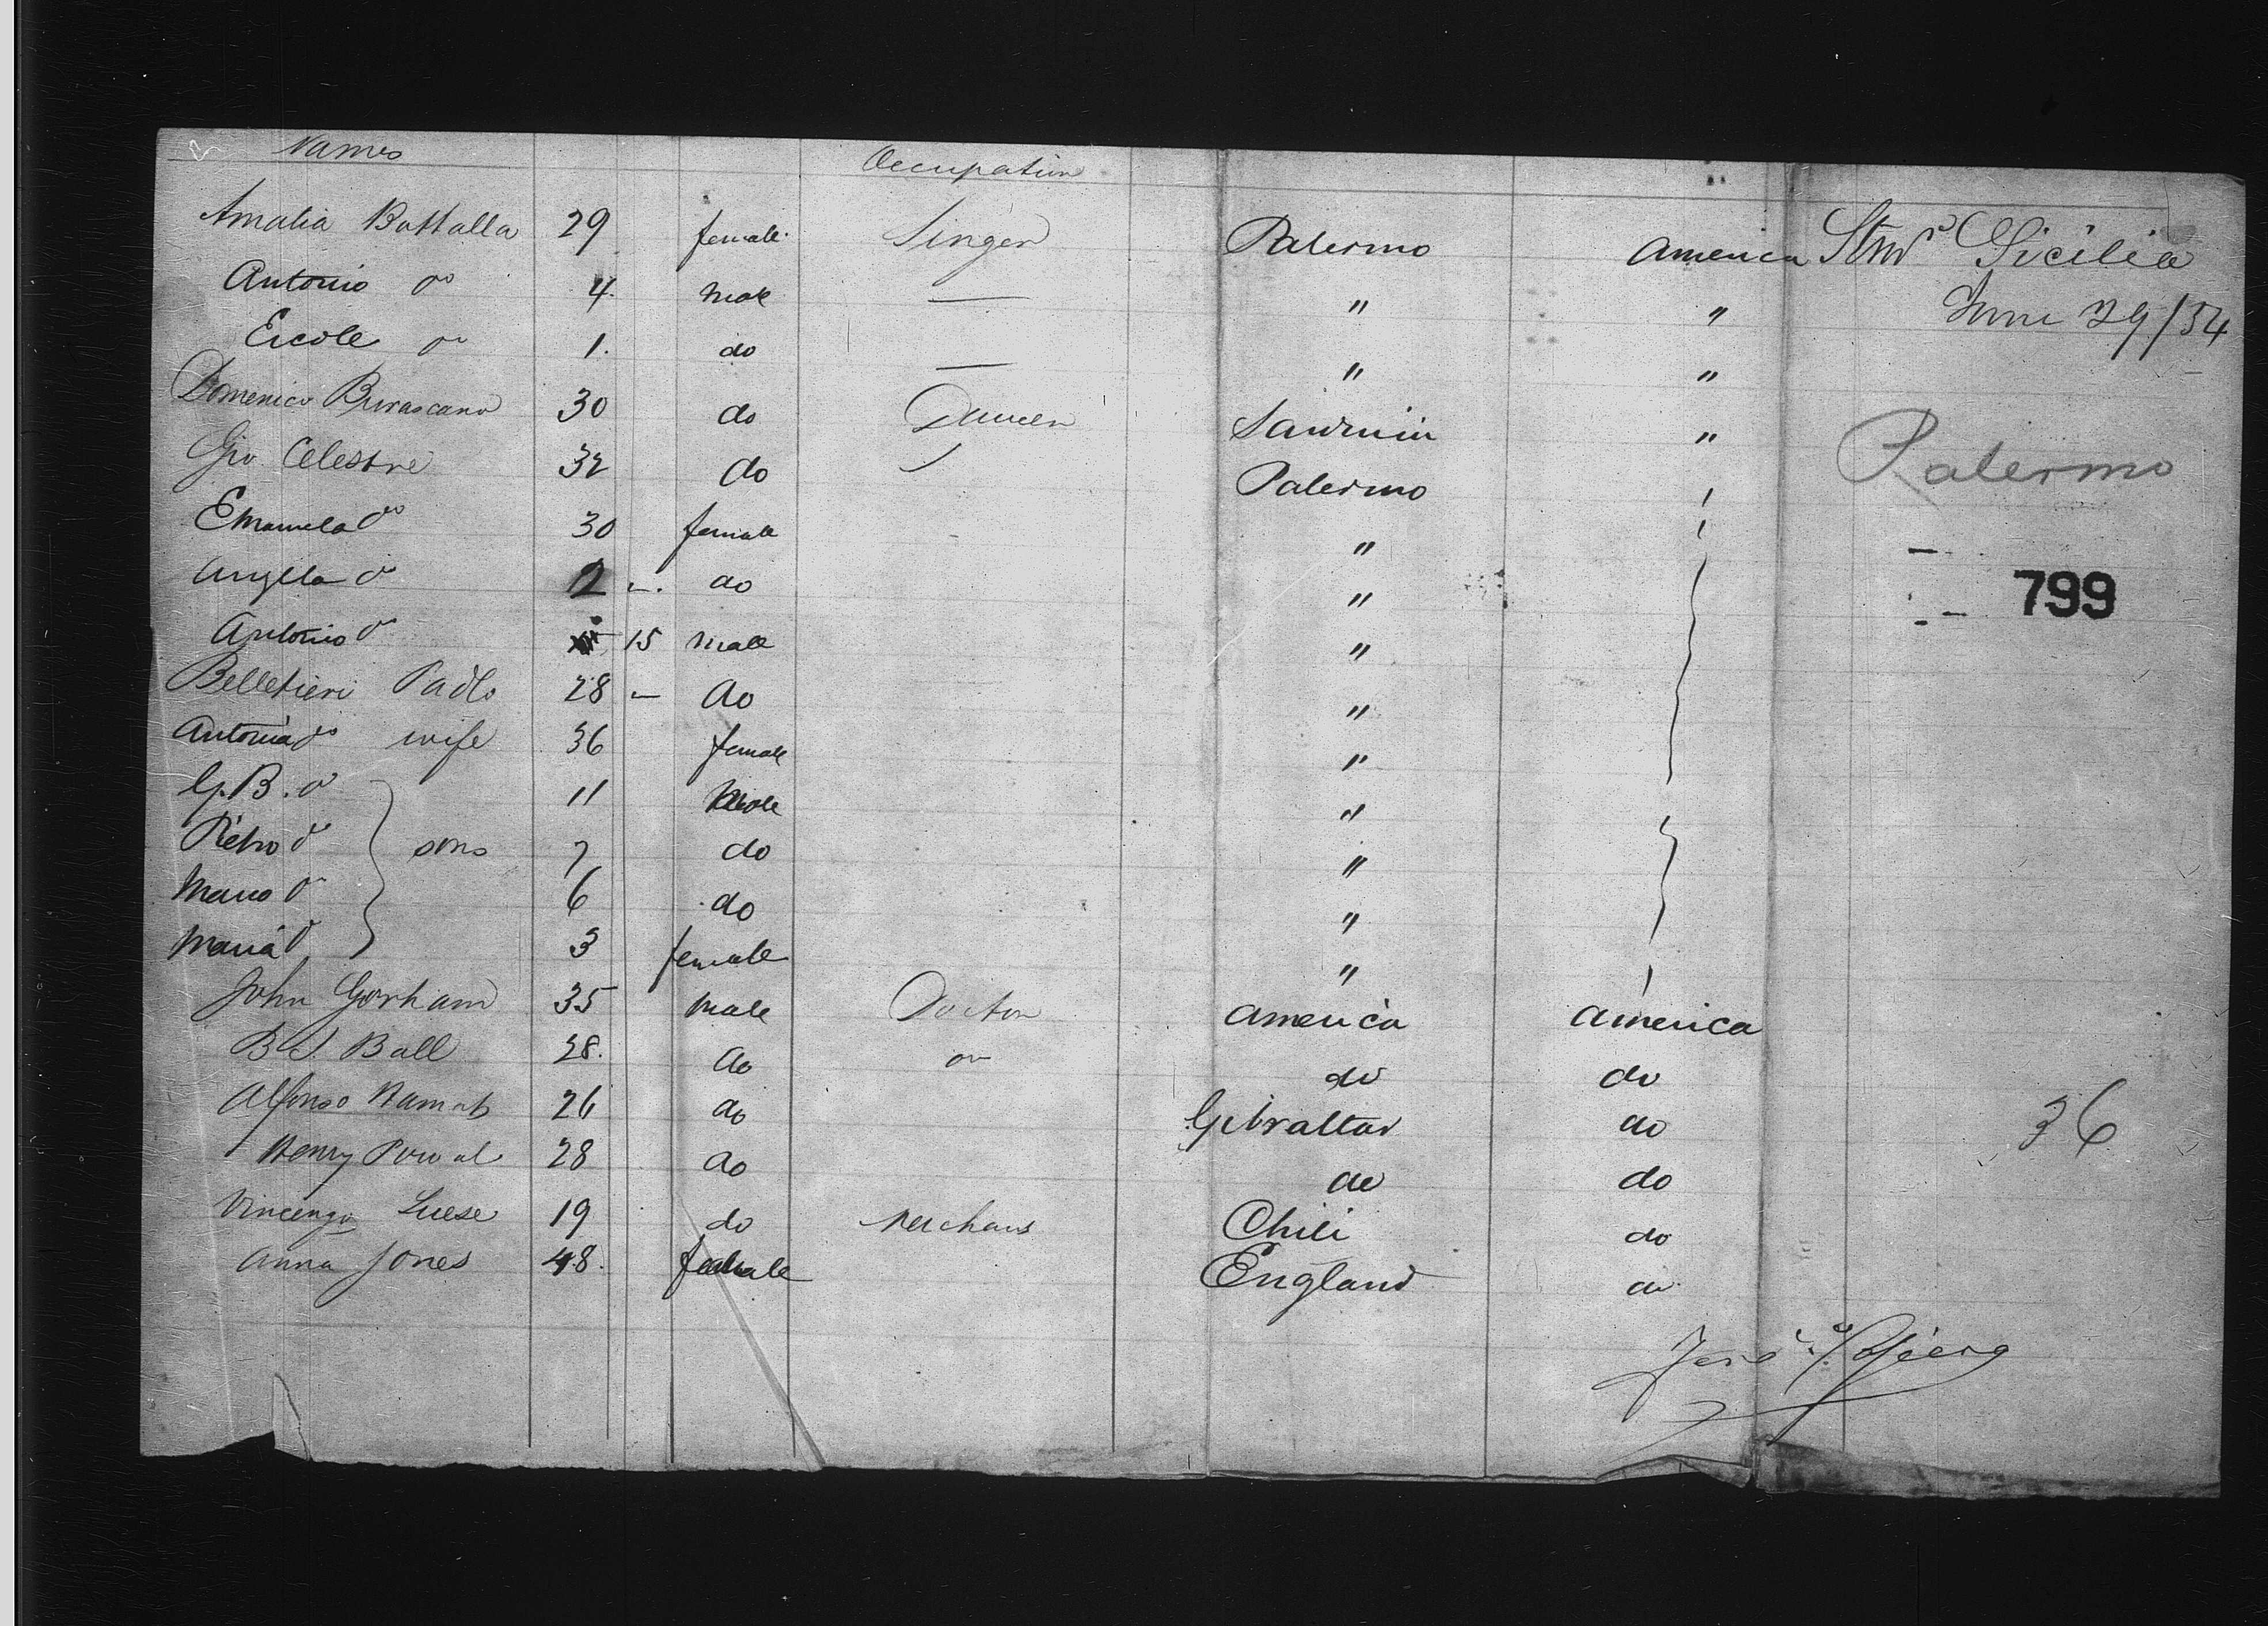 Names Occupation
Amalia Battalla 29 female Singer Palermo America Stmr Sicilia
Antonio do 4. male — " " June 29/54
Ercole do 1. do — " "
Domenico Burascano 30 do Dancer Sardinia "
Gio Celestre 32 do Palermo
Emanuela do 30 female "
Angella do 2 do "
Antonio do 15 male "
Belletieri Paolo 28 — do "
Antonia do wife 36 female "
G.B. do 11 Male "
Pietro do sons 7 do "
Marco do 6 do "
Maria do 3 female "
John Gorham 35 male Doctor America America
B.S. Ball 28. do do do do
Alfonso 26 do Gibraltar do
Henry 28 do do do
Vincenzo 19 do Merchant Chili do
Anna Jones 48. female England do
Palermo
799
36